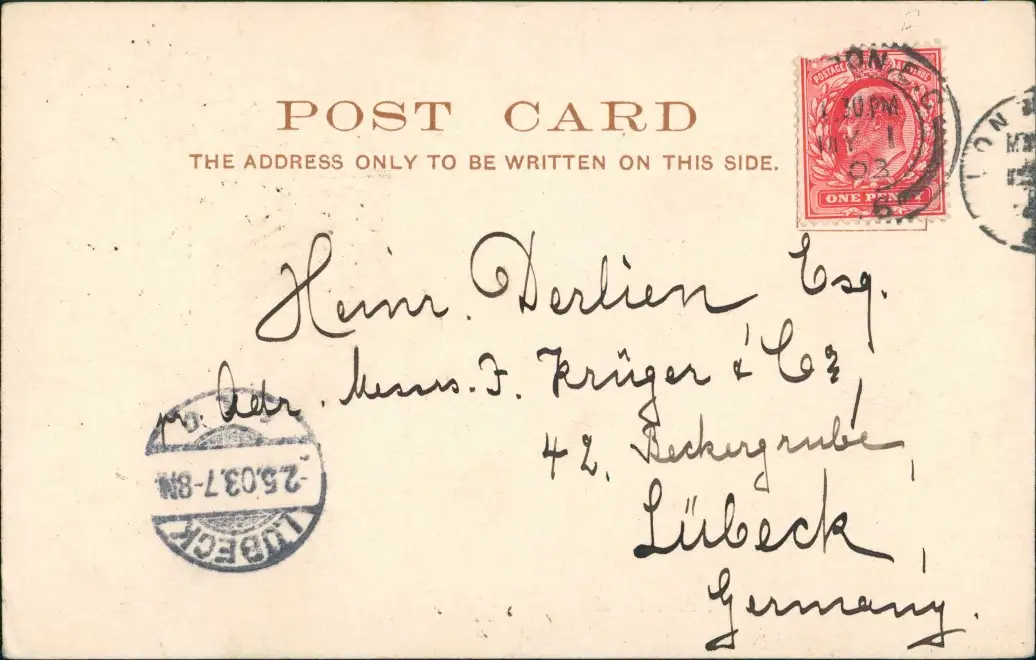 POST CARD
THE ADDRESS ONLY TO BE WRITTEN ON THIS SIDE.
POSTAGE REVENUE
30 PM
MY 1
03
ONE PENNY
Heinr. Derlien Esq.
pr. Adr. Messrs. F. Krüger & Co,
42, Beckergrube,
Lübeck,
Germany.
LÜBECK
-2.5.03.7-8N.